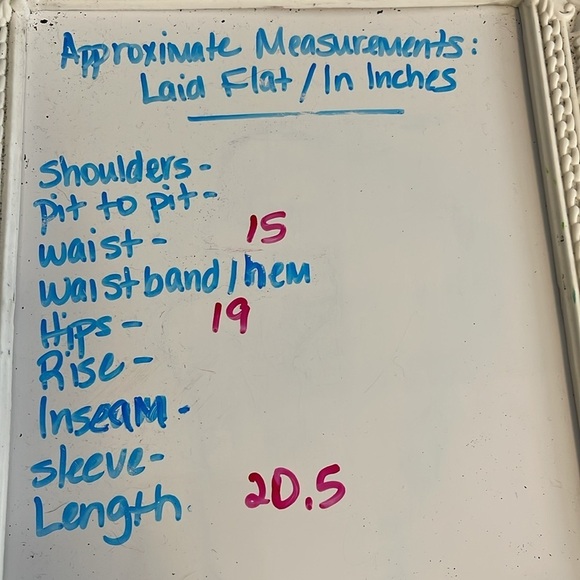 Approximate Measurements:
Laid Flat/In Inches
Shoulders-
pit to pit-
waist- 15
waistband/hem
Hips- 19
Rise-
Inseam-
sleeve-
Length 20.5